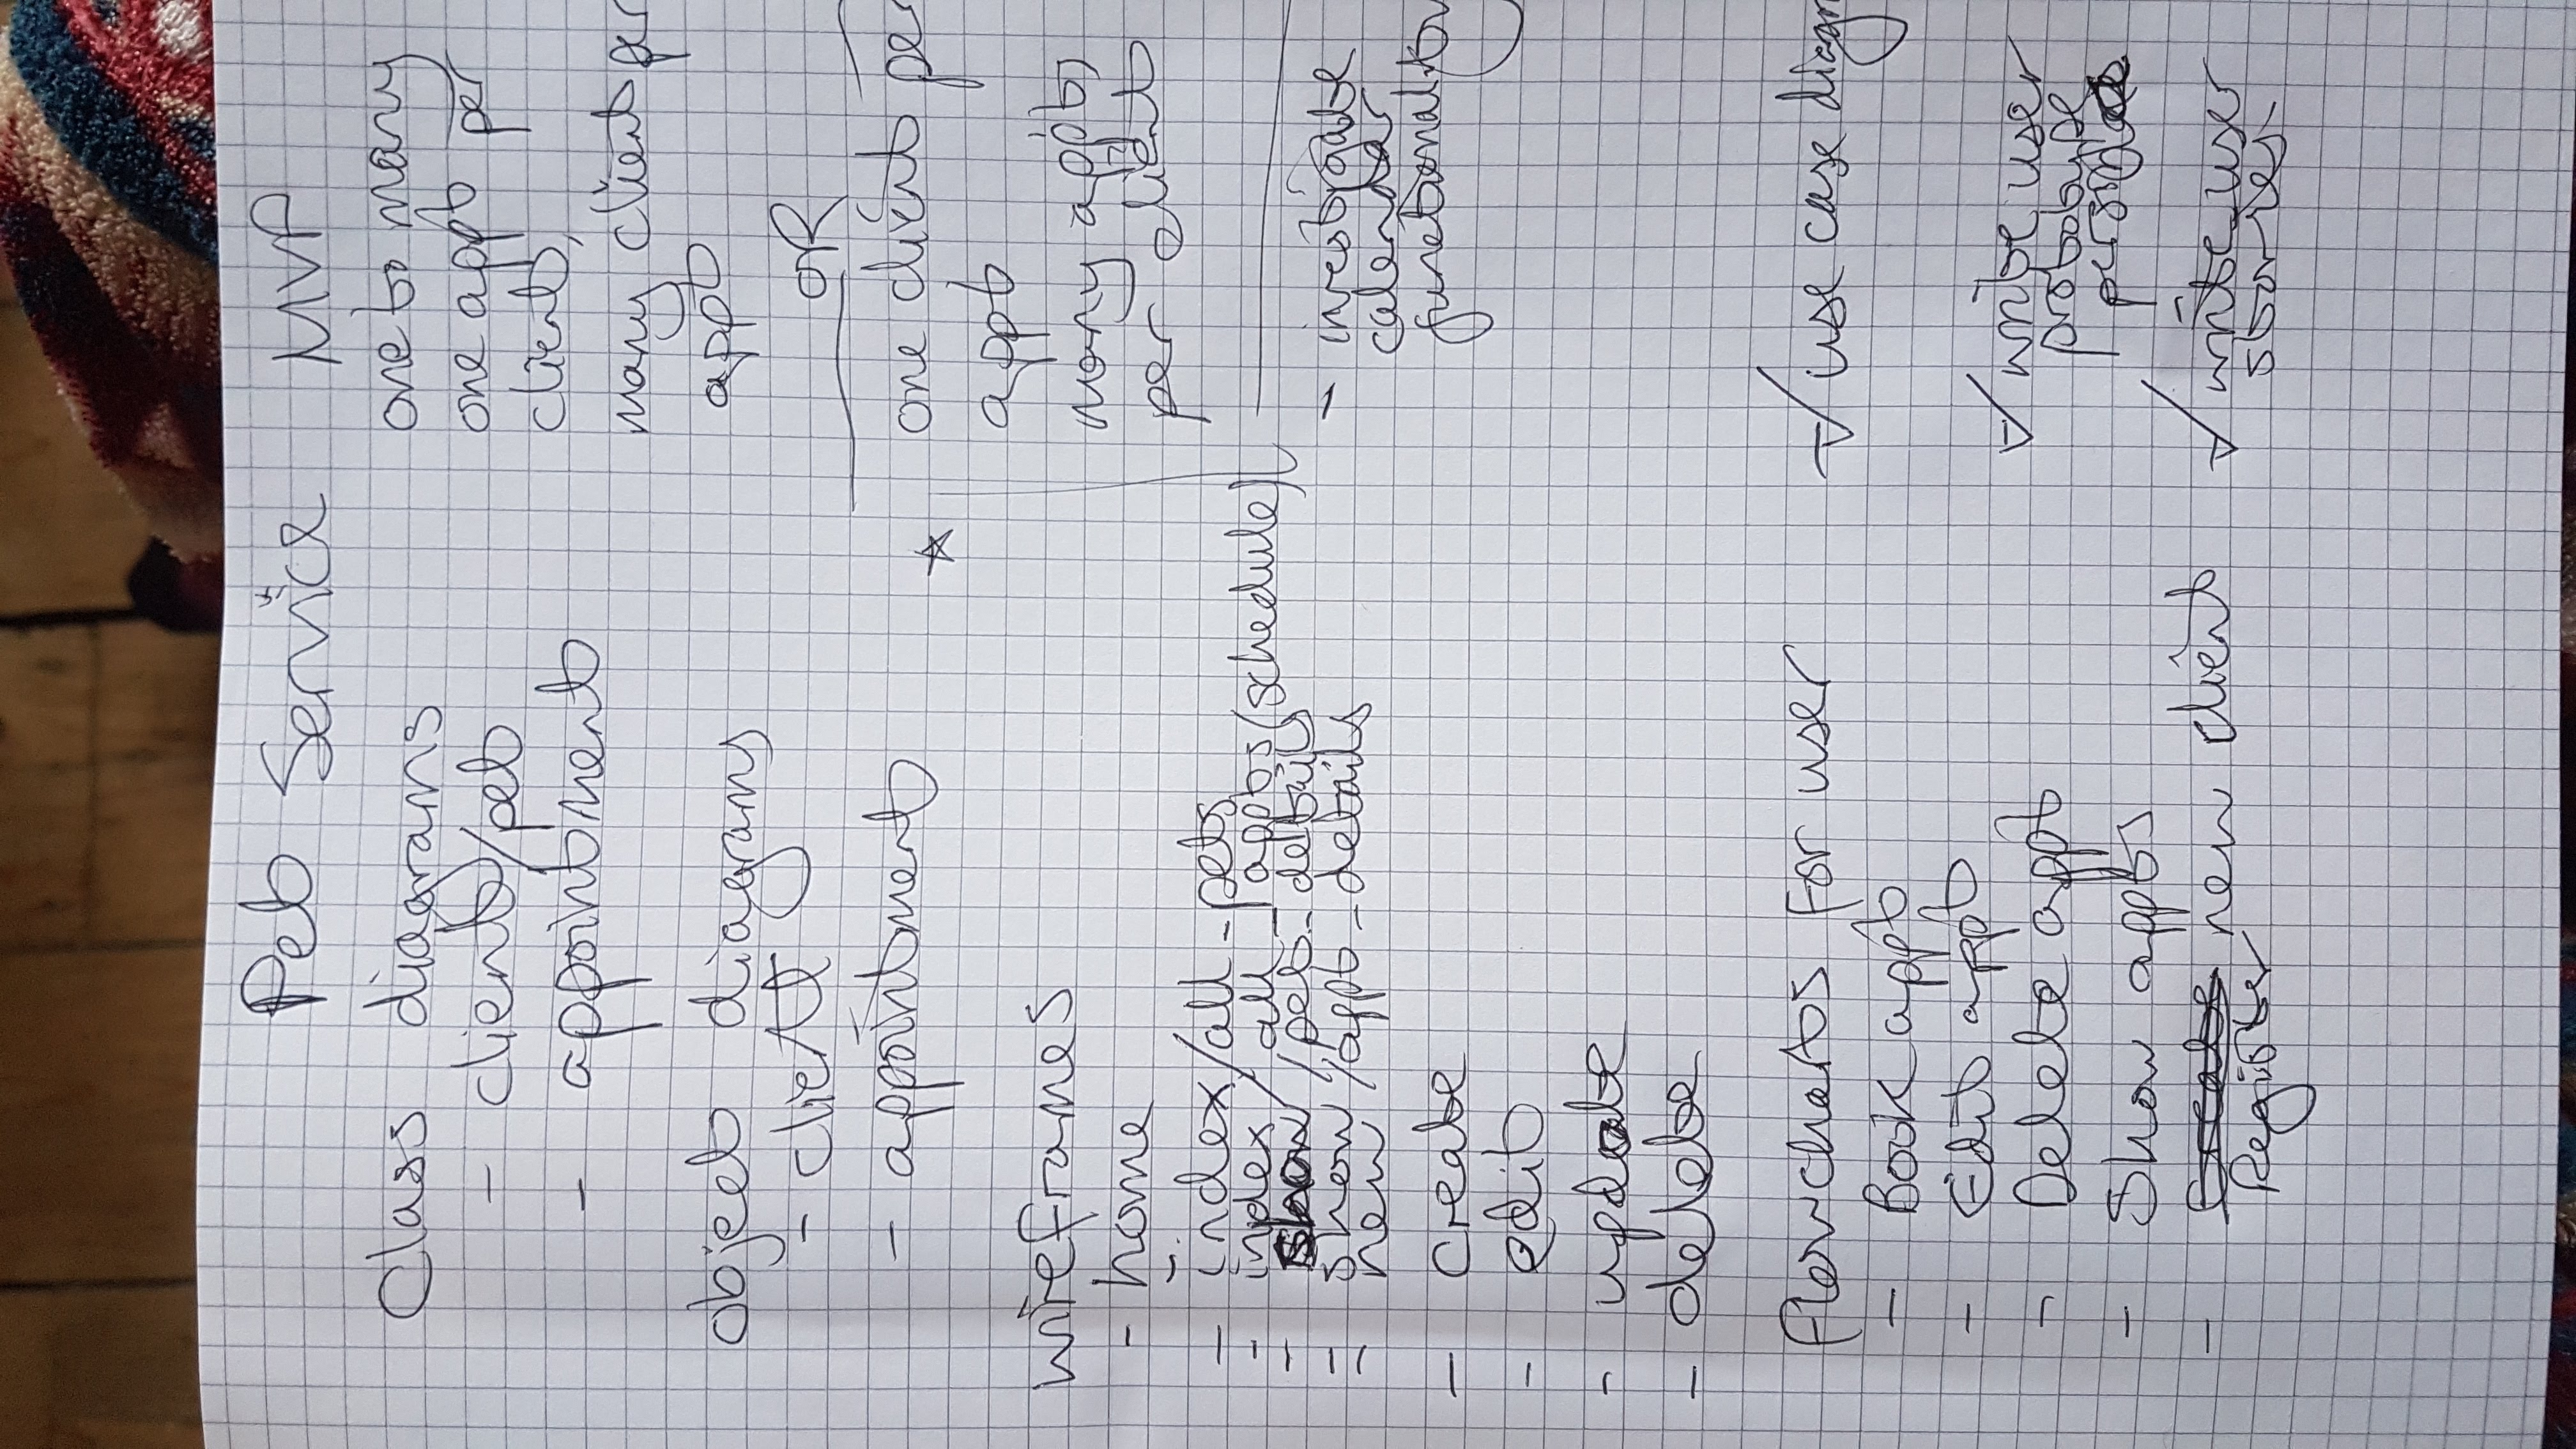 Pet Service MVP
Class diagrams
- client/pet
- appointment
object diagrams
- client
- appointment
wireframes
- home
- index/all_pets
- index/all_appts (schedule)
- show/pet_details
- show/appt_details
- new
- create
- edit
- update
- delete
flowcharts for user
- Book appt
- Edit appt
- Delete appt
- Show appts
- Create new client
Register
one to many
one appt per
client,
many client per
appt
OR
one client per
appt
many appts
per client
- investigate
calendar
functionality
- use case diagr
- write user
prototype
personas
- write user
stories